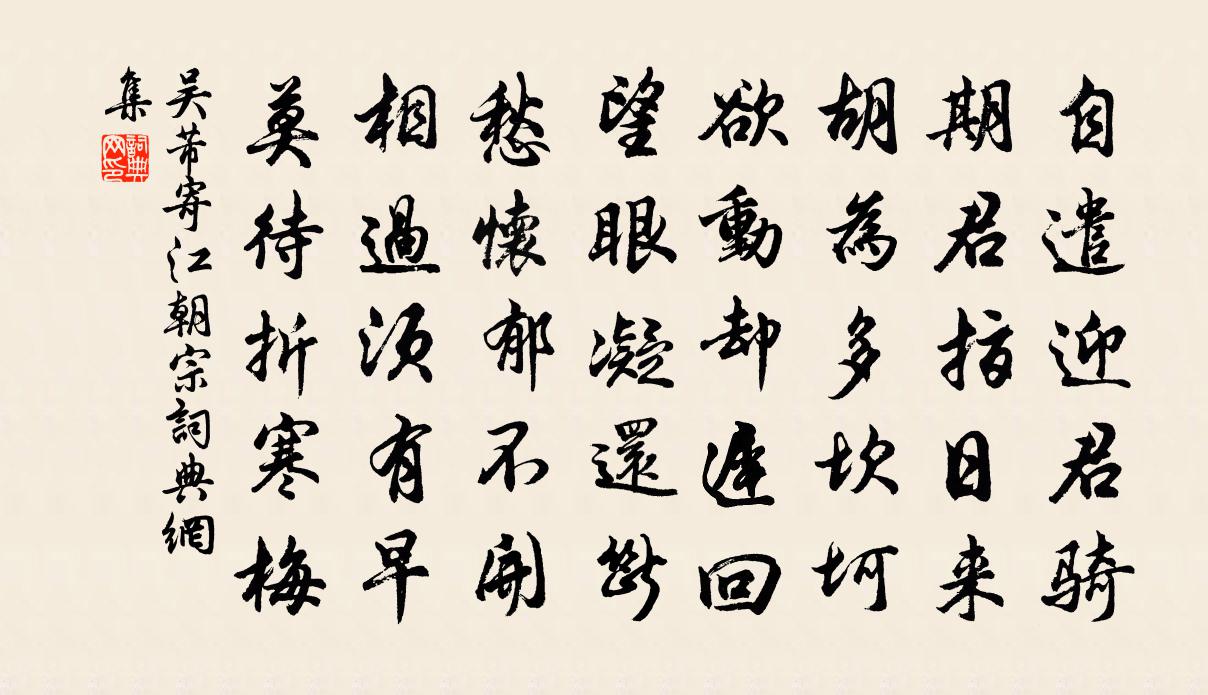 自遣迎君骑
期君指日来
胡為多坎坷
欲動却遲回
望眼凝還斷
愁懷郁不開
相過須有早
莫待折寒梅
吴芾寄江朝宗詞典網
集
詞典網印